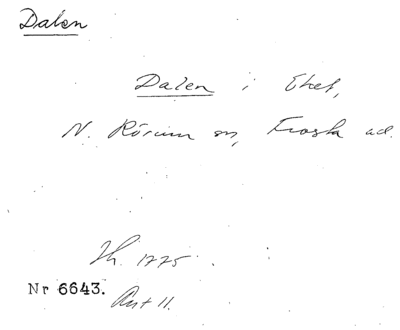 Dalen
Dalen i Ekef,
N. Rörum sn, Frosta äd.
Jh. 1775
Nr 6643.
Ant 11.